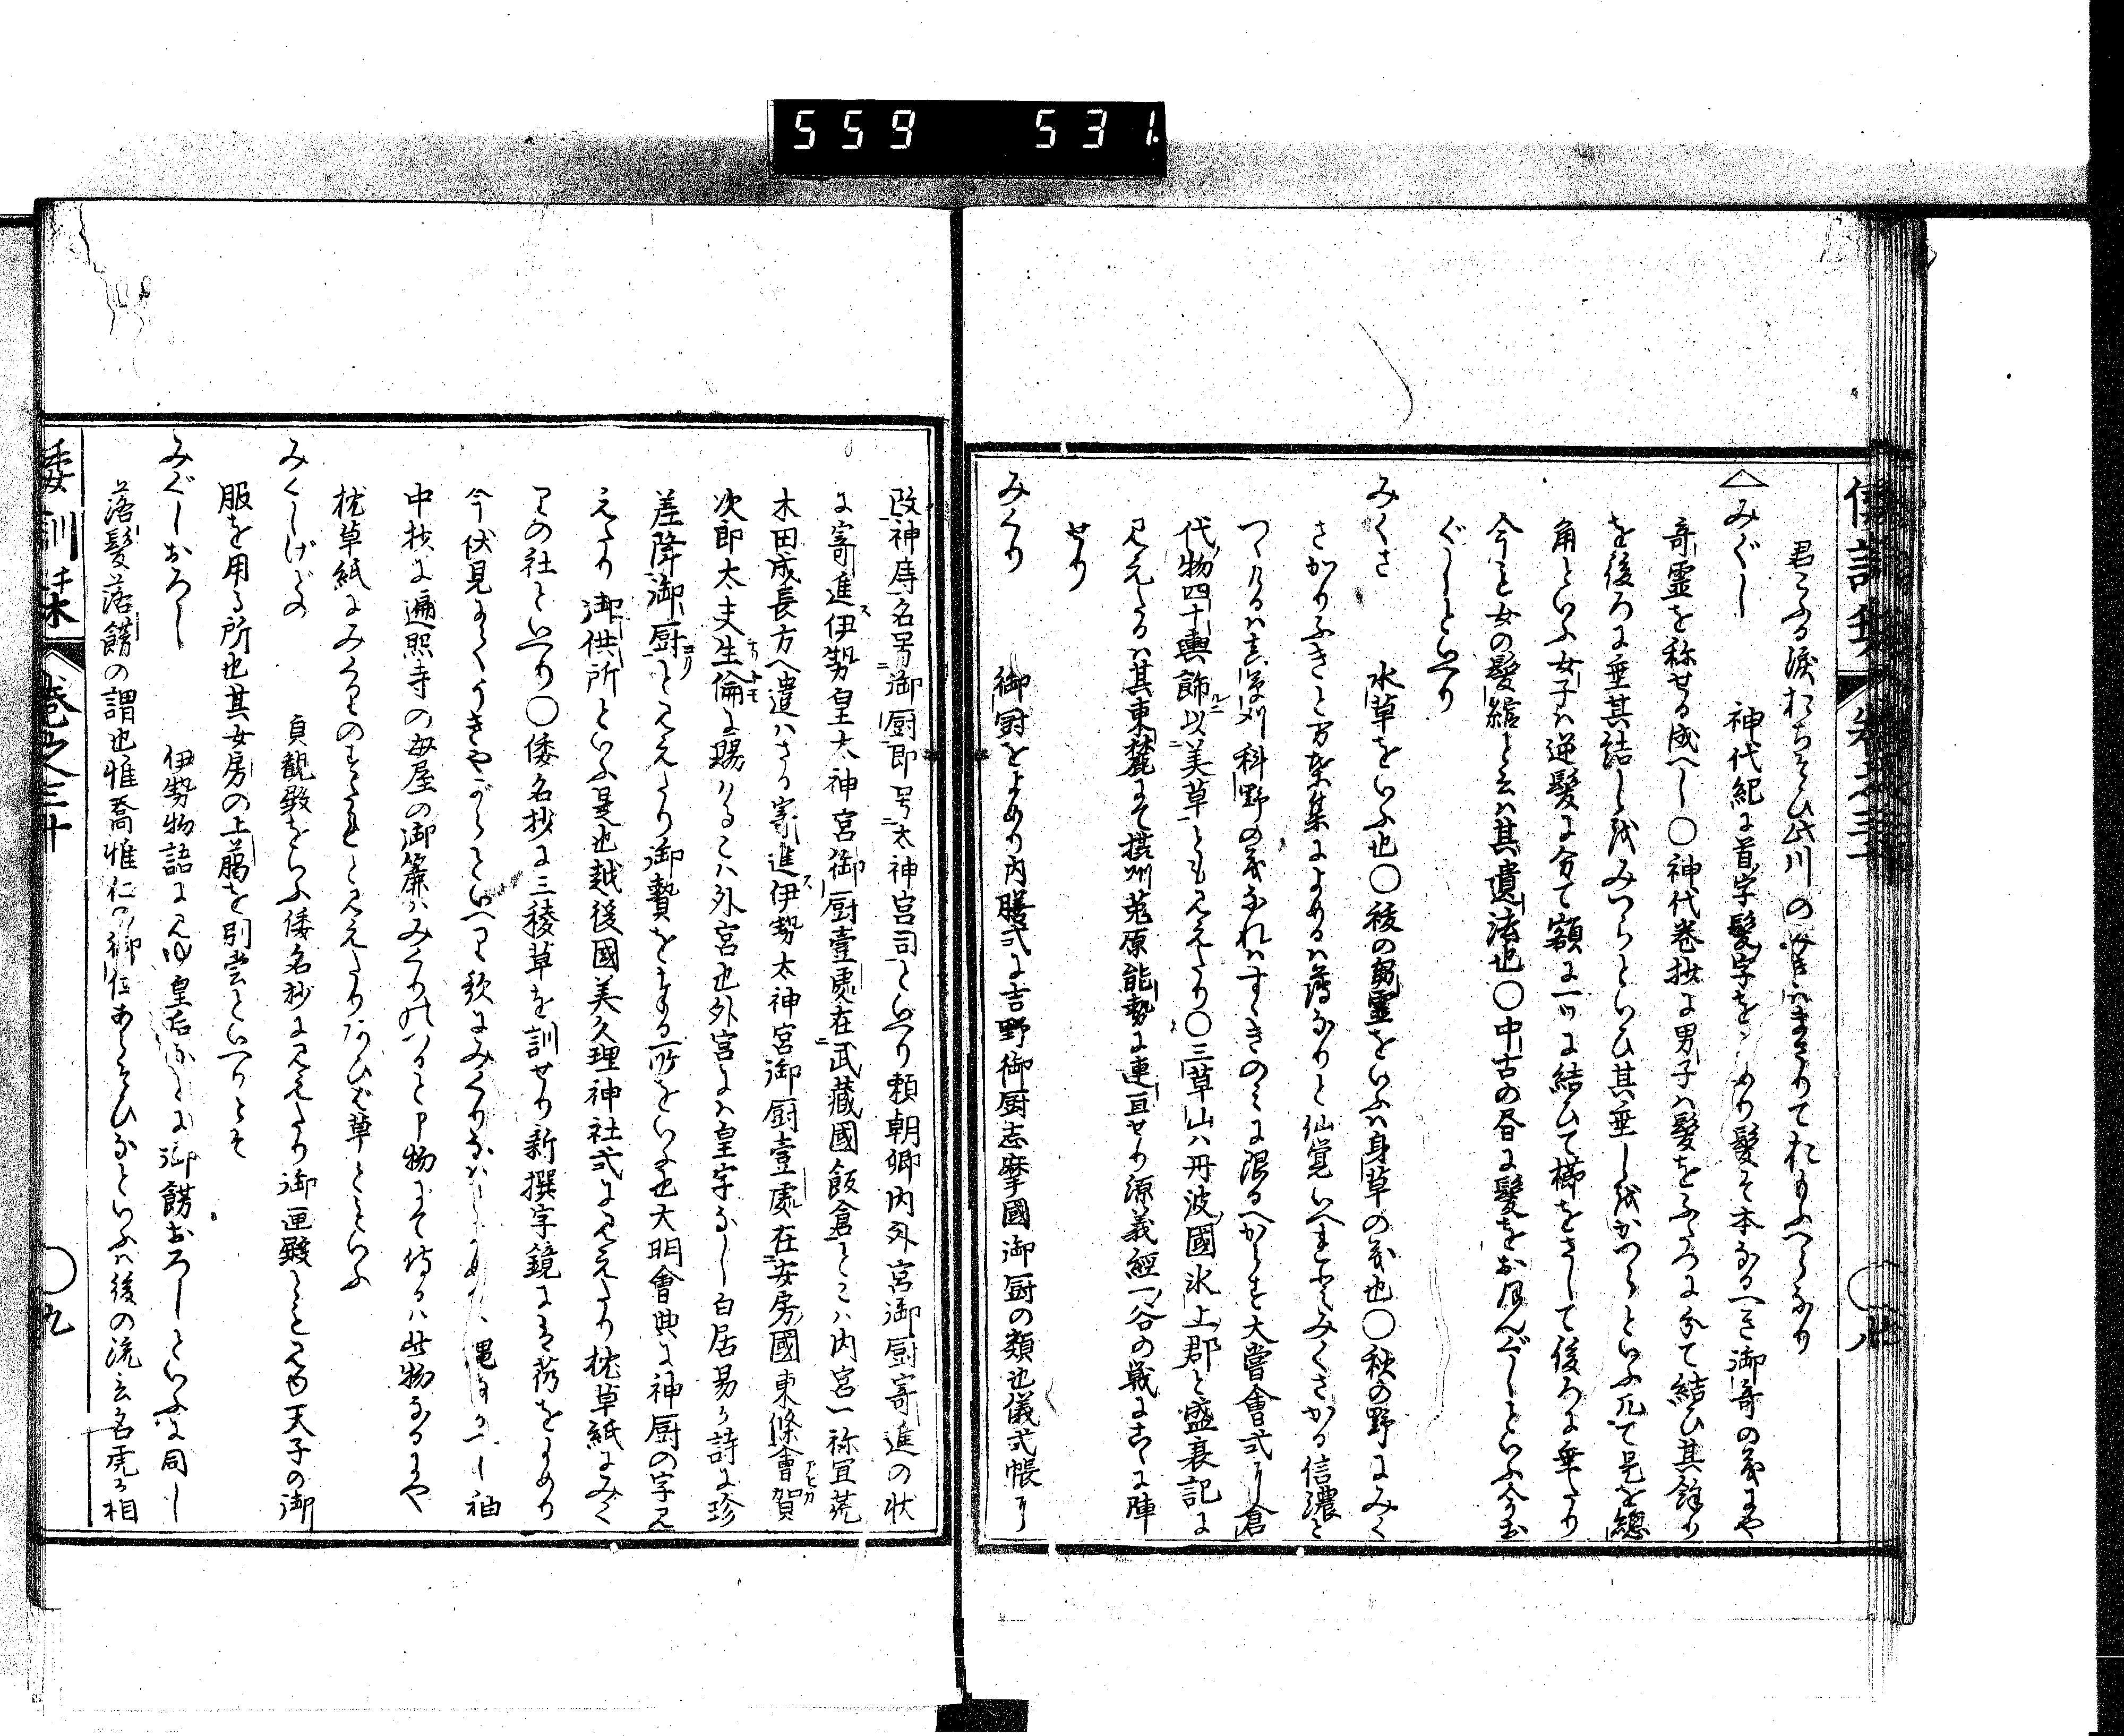 559 531
君こふる涙おちそひ此川のみきはまさりておもふへらなり
みぐし 神代紀に首字髪字をよめり髪そ本なるへき御奇の義にや
奇霊を称せる成へし〇神代巻抄に男子ハ髪をふたつに分て結ひ其餘り
を後ろに垂其結しをみつらといひ其垂しをかつらといふ凡て是を總
角といふ女子ハ逆髪に分て額に一ツに結ひて櫛をさして後ろに垂たり
今も女の髪縮と云ハ其遺法也〇中古の昏に髪をおほんぐしといふ今お
ぐしといへり
みくさ 水草をいふ也〇稜の霊をいふハ身草の義也〇秋の野にみく
さかりふきと万葉集によめるハ薄なりと仙覚いへれともみくさかる信濃と
つゝけるハ真澄刈科野の義なれハすゝきのミに限るへからす大嘗會式に倉
代物四十輿飾以美草ともみえたり〇三草山ハ丹波國氷上郡と盛衰記に
みえたるハ其東麓にて摂州菟原能勢に連亘せり源義經一谷の戦にこゝに陣
せり
みくり 御厨をよめり内膳式に吉野御厨志摩國御厨の類也儀式帳に
改神庤名号御厨即号太神宮司といへり頼朝卿内外宮御厨寄進の状
に寄進伊勢皇太神宮御厨壹處在武藏國飯倉とこハ内宮一祢宜荒
木田成長方へ遣ハさる寄進伊勢太神宮御厨壹處在安房國東條會賀
次郎太夫生倫に賜ハるこハ外宮也外宮にハ皇字なし白居易か詩に珍
差降御厨とみえたり御贄をそなふる所をいふ也大明會典に神厨の字み
えたり御供所といふ是也越後國美久理神社式にみえたり枕草紙にみく
りの社といへり〇倭名抄に三稜草を訓せり新撰字鏡に
今伏見にてうきやがらといへり歌にみくりなハ
中抄に遍照寺の母屋の御簾ハみくりのハると申物にて侍るハ此物なるにや
枕草紙にみくりのすたれとみえたり
みくしげどの 貞觀殿をいふ倭名抄にみえたり御匣殿ともみゆ天子の御
服を用る所也其女房の上﨟を別当といへりとそ
みぐしおろし 伊勢物語にみゆ皇后なとに御餝おろしといふに同し
落髪落餝の謂也惟喬惟仁の御位あらそひなといふハ後の流言名虎か相
倭訓栞 巻之三十 九